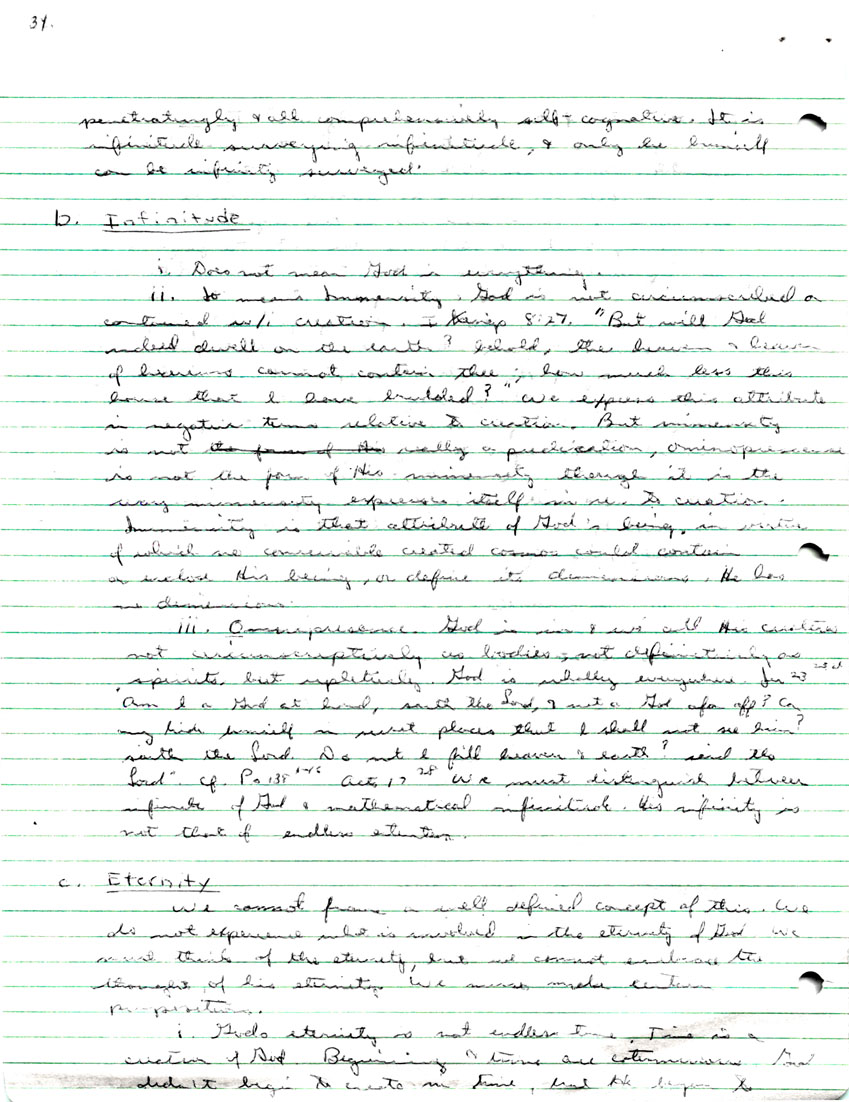 34.
penetratingly & all comprehensively self-cognative. It is
infinitude surveying infinitude, & only he himself
can be infinity surveyed.
b. Infinitude
i. Does not mean God is everything.
ii. It means Immensity. God is not circumscribed or
contained w/i creation. I Kings 8:27. "But will God
indeed dwell on the earth? behold, the heaven & heaven
of heavens cannot contain thee; how much less this
house that I have builded?" We express this attribute
in negative terms relative to creation. But immensity
is not the form of His really a predication, Ominopresence
is not the form of His immensity though it is the
way immensity expresses itself in re. to creation.
Immensity is that attribute of God's being, in virtue
of which no conceivable created cosmos could contain
or enclose His being, or define its dimensions. He has
no dimension.
iii. Omnipresence. God is in & w/ all His creatures
not circumscriptively as bodies, not definitively as
spirits, but repletively. God is wholly everywhere. Jer 23
Am I a God at hand, saith the Lord, & not a God afar off? Can
any hide himself in secret places that I shall not see him?
saith the Lord. Do not I fill heaven & earth? said the
Lord". cf. Ps 139 Acts 17 28 We must distinguish between
infinity of God & mathematical infinitude. His infinity is
not that of endless extention.
c. Eternity
We cannot frame a well defined concept of this. We
do not experience what is involved in the eternity of God. We
must think of the eternity, but we cannot embrace the
thought of his eternity. We must make certain
propositions.
i. Gods eternity is not endless time. Time is a
creation of God. Beginning & time are God
didn't begin to create in time, but He began to